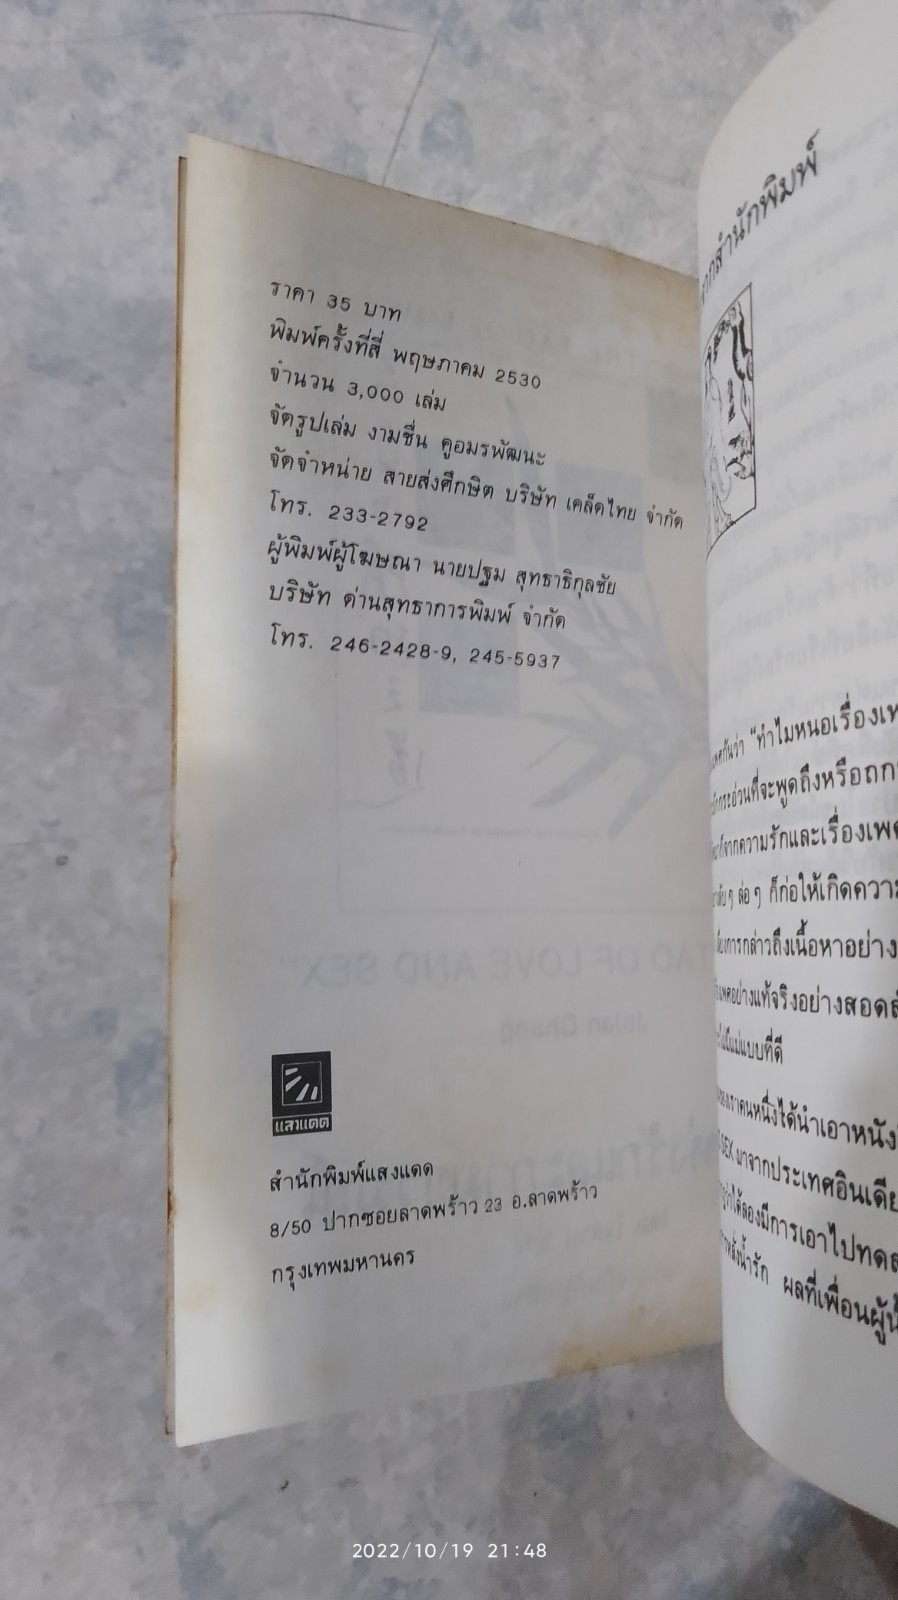 ราคา 35 บาท
พิมพ์ครั้งที่สี่ พฤษภาคม 2530
จำนวน 3,000 เล่ม
จัดรูปเล่ม งามชื่น คูอมรพัฒนะ
จัดจำหน่าย สายส่งศึกษิต บริษัท เคล็ดไทย จำกัด
โทร. 233-2792
ผู้พิมพ์ผู้โฆษณา นายปฐม สุทธาธิกุลชัย
บริษัท ด่านสุทธาการพิมพ์ จำกัด
โทร. 246-2428-9, 245-5937
TAO OF LOVE AND SEX"
Jolan Chang
แสงแดด
สำนักพิมพ์แสงแดด
8/50 ปากซอยลาดพร้าว 23 อ.ลาดพร้าว
กรุงเทพมหานคร
จากสำนักพิมพ์
เพศกันว่า "ทำไมหนอเรื่องเพ
กระอ่วนที่จะพูดถึงหรือถก
จากความรักและเรื่องเพศ
ลับๆ ล่อๆ ก็ก่อให้เกิดความ
การกล่าวถึงเนื้อหาอย่าง
เพศอย่างแท้จริงอย่างสอด
แม่แบบที่ดี
ของเราคนหนึ่งได้นำเอาหนัง
SEX มาจากประเทศอินเดีย
ได้ลองมีการเอาไปทด
หลั่งน้ำรัก ผลที่เพื่อนผู้
2022/10/19 21:48